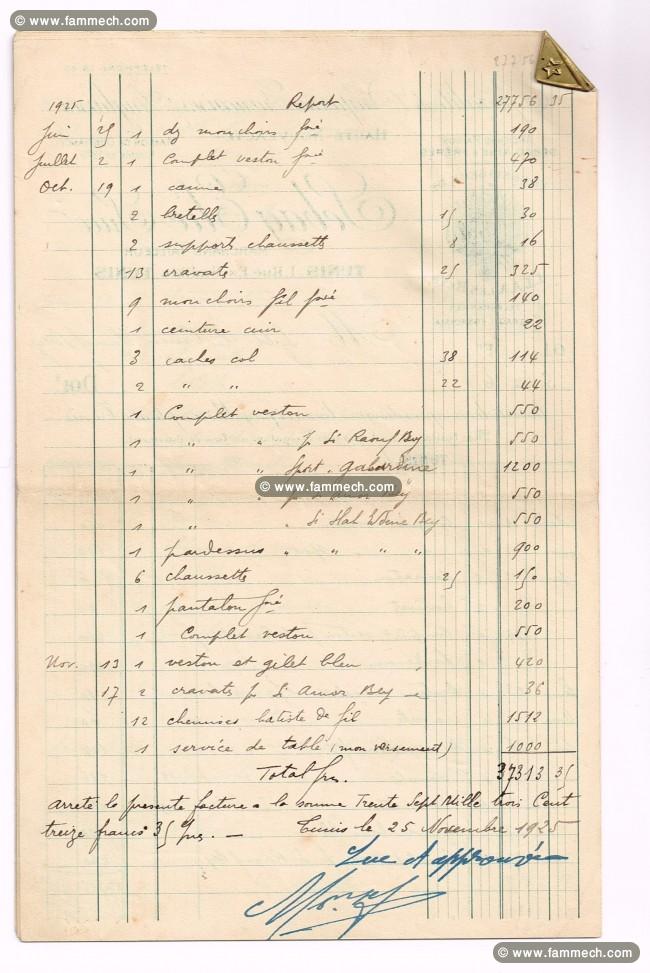 © www.fammech.com
© www.fammech.com
23756
1925 Report 27756 35
Juin 25 1 dz mouchoirs soie 190
Juillet 2 1 Complet veston soie 470
Oct. 19 1 canne 38
2 bretells 15 30
2 supports chaussetts 8 16
13 cravats 25 325
9 mouchoirs fil soie 140
1 ceinture cuir 22
3 caches col 38 114
2 " " 22 44
1 Complet veston 550
1 " " p Si Raouf Bey 550
1 " " Sport. Gabardine 1200
© www.fammech.com
1 " " Bey 550
1 " " Si Slah Eddine Bey 550
1 pardessus " " " " 900
6 chaussetts 25 150
1 pantalon soie 200
1 Complet veston 550
Nov. 13 1 veston et gilet bleu 420
17 2 cravats p Si Amor Bey 36
12 chemises batiste de fil 1512
1 service de table (mon versement) 1000
Total frs. 37313 35
arreté la presente facture a la somme Trente Sept Mille trois Cent
treize francs 35 — Tunis le 25 Novembre 1925
Lue et approuvée
© www.fammech.com
© www.fammech.com